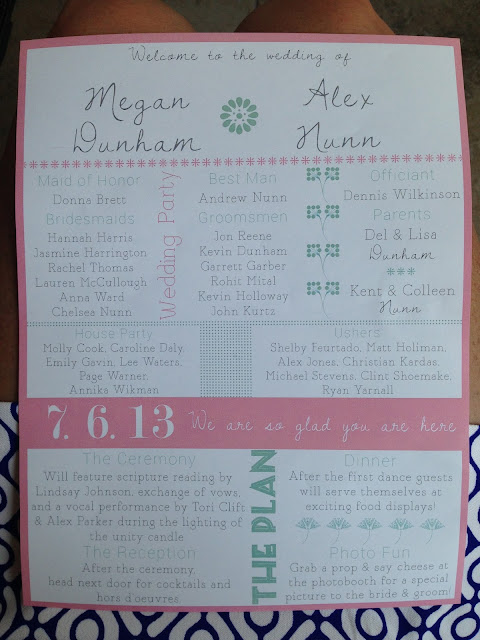 Welcome to the wedding of
Megan
Dunham
Alex
Nunn
Maid of Honor
Donna Brett
Bridesmaids
Hannah Harris
Jasmine Harrington
Rachel Thomas
Lauren McCullough
Anna Ward
Chelsea Nunn
Wedding Party
Best Man
Andrew Nunn
Groomsmen
Jon Reene
Kevin Dunham
Garrett Garber
Rohit Mital
Kevin Holloway
John Kurtz
Officiant
Dennis Wilkinson
Parents
Del & Lisa
Dunham
Kent & Colleen
Nunn
House Party
Molly Cook, Caroline Daly,
Emily Gavin, Lee Waters,
Page Warner,
Annika Wikman
Ushers
Shelby Feurtado, Matt Holiman,
Alex Jones, Christian Kardas,
Michael Stevens, Clint Shoemake,
Ryan Yarnall
7. 6. 13 We are so glad you are here
The Ceremony
Will feature scripture reading by
Lindsay Johnson, exchange of vows,
and a vocal performance by Tori Clift
& Alex Parker during the lighting of
the unity candle
The Reception
After the ceremony,
head next door for cocktails and
hors d'oeuvres
THE PLAN
Dinner
After the first dance guests
will serve themselves at
exciting food displays!
Photo Fun
Grab a prop & say cheese at
the photobooth for a special
picture to the bride & groom!